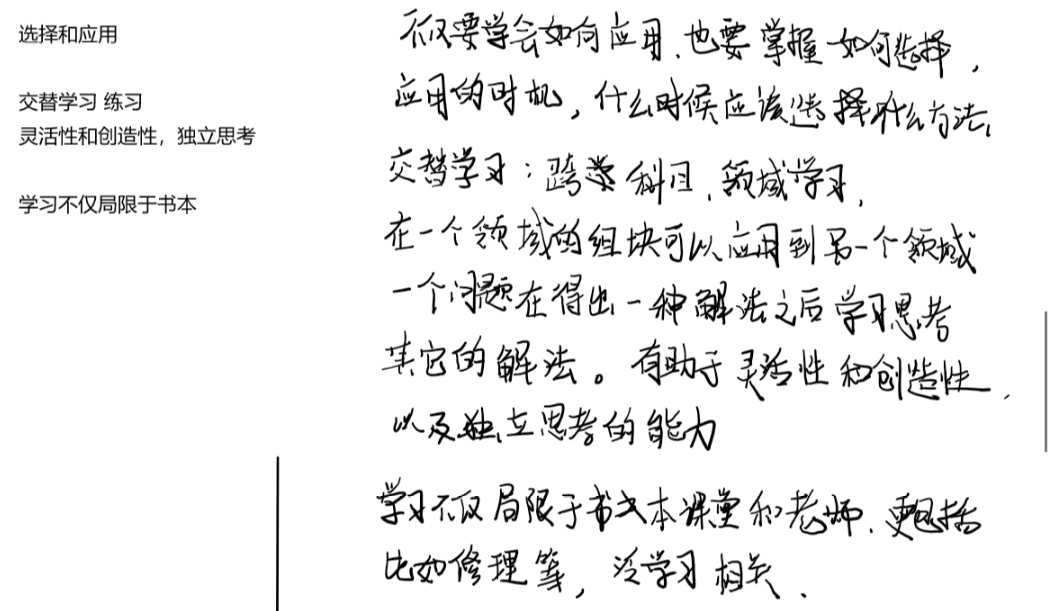 选择和应用
交替学习 练习
灵活性和创造性，独立思考
学习不仅局限于书本
不仅要学会如何应用、也要掌握如何选择，
应用的时机，什么时候应该选择什么方法，
交替学习：跨学科目、领域学习，
在一个领域的组块可以应用到另一个领域
一个问题在得出一种解法之后学习思考
其它的解法。有助于灵活性和创造性，
以及独立思考的能力
学习不仅局限于书本课堂和老师、更包括
比如修理等，泛学习相关、